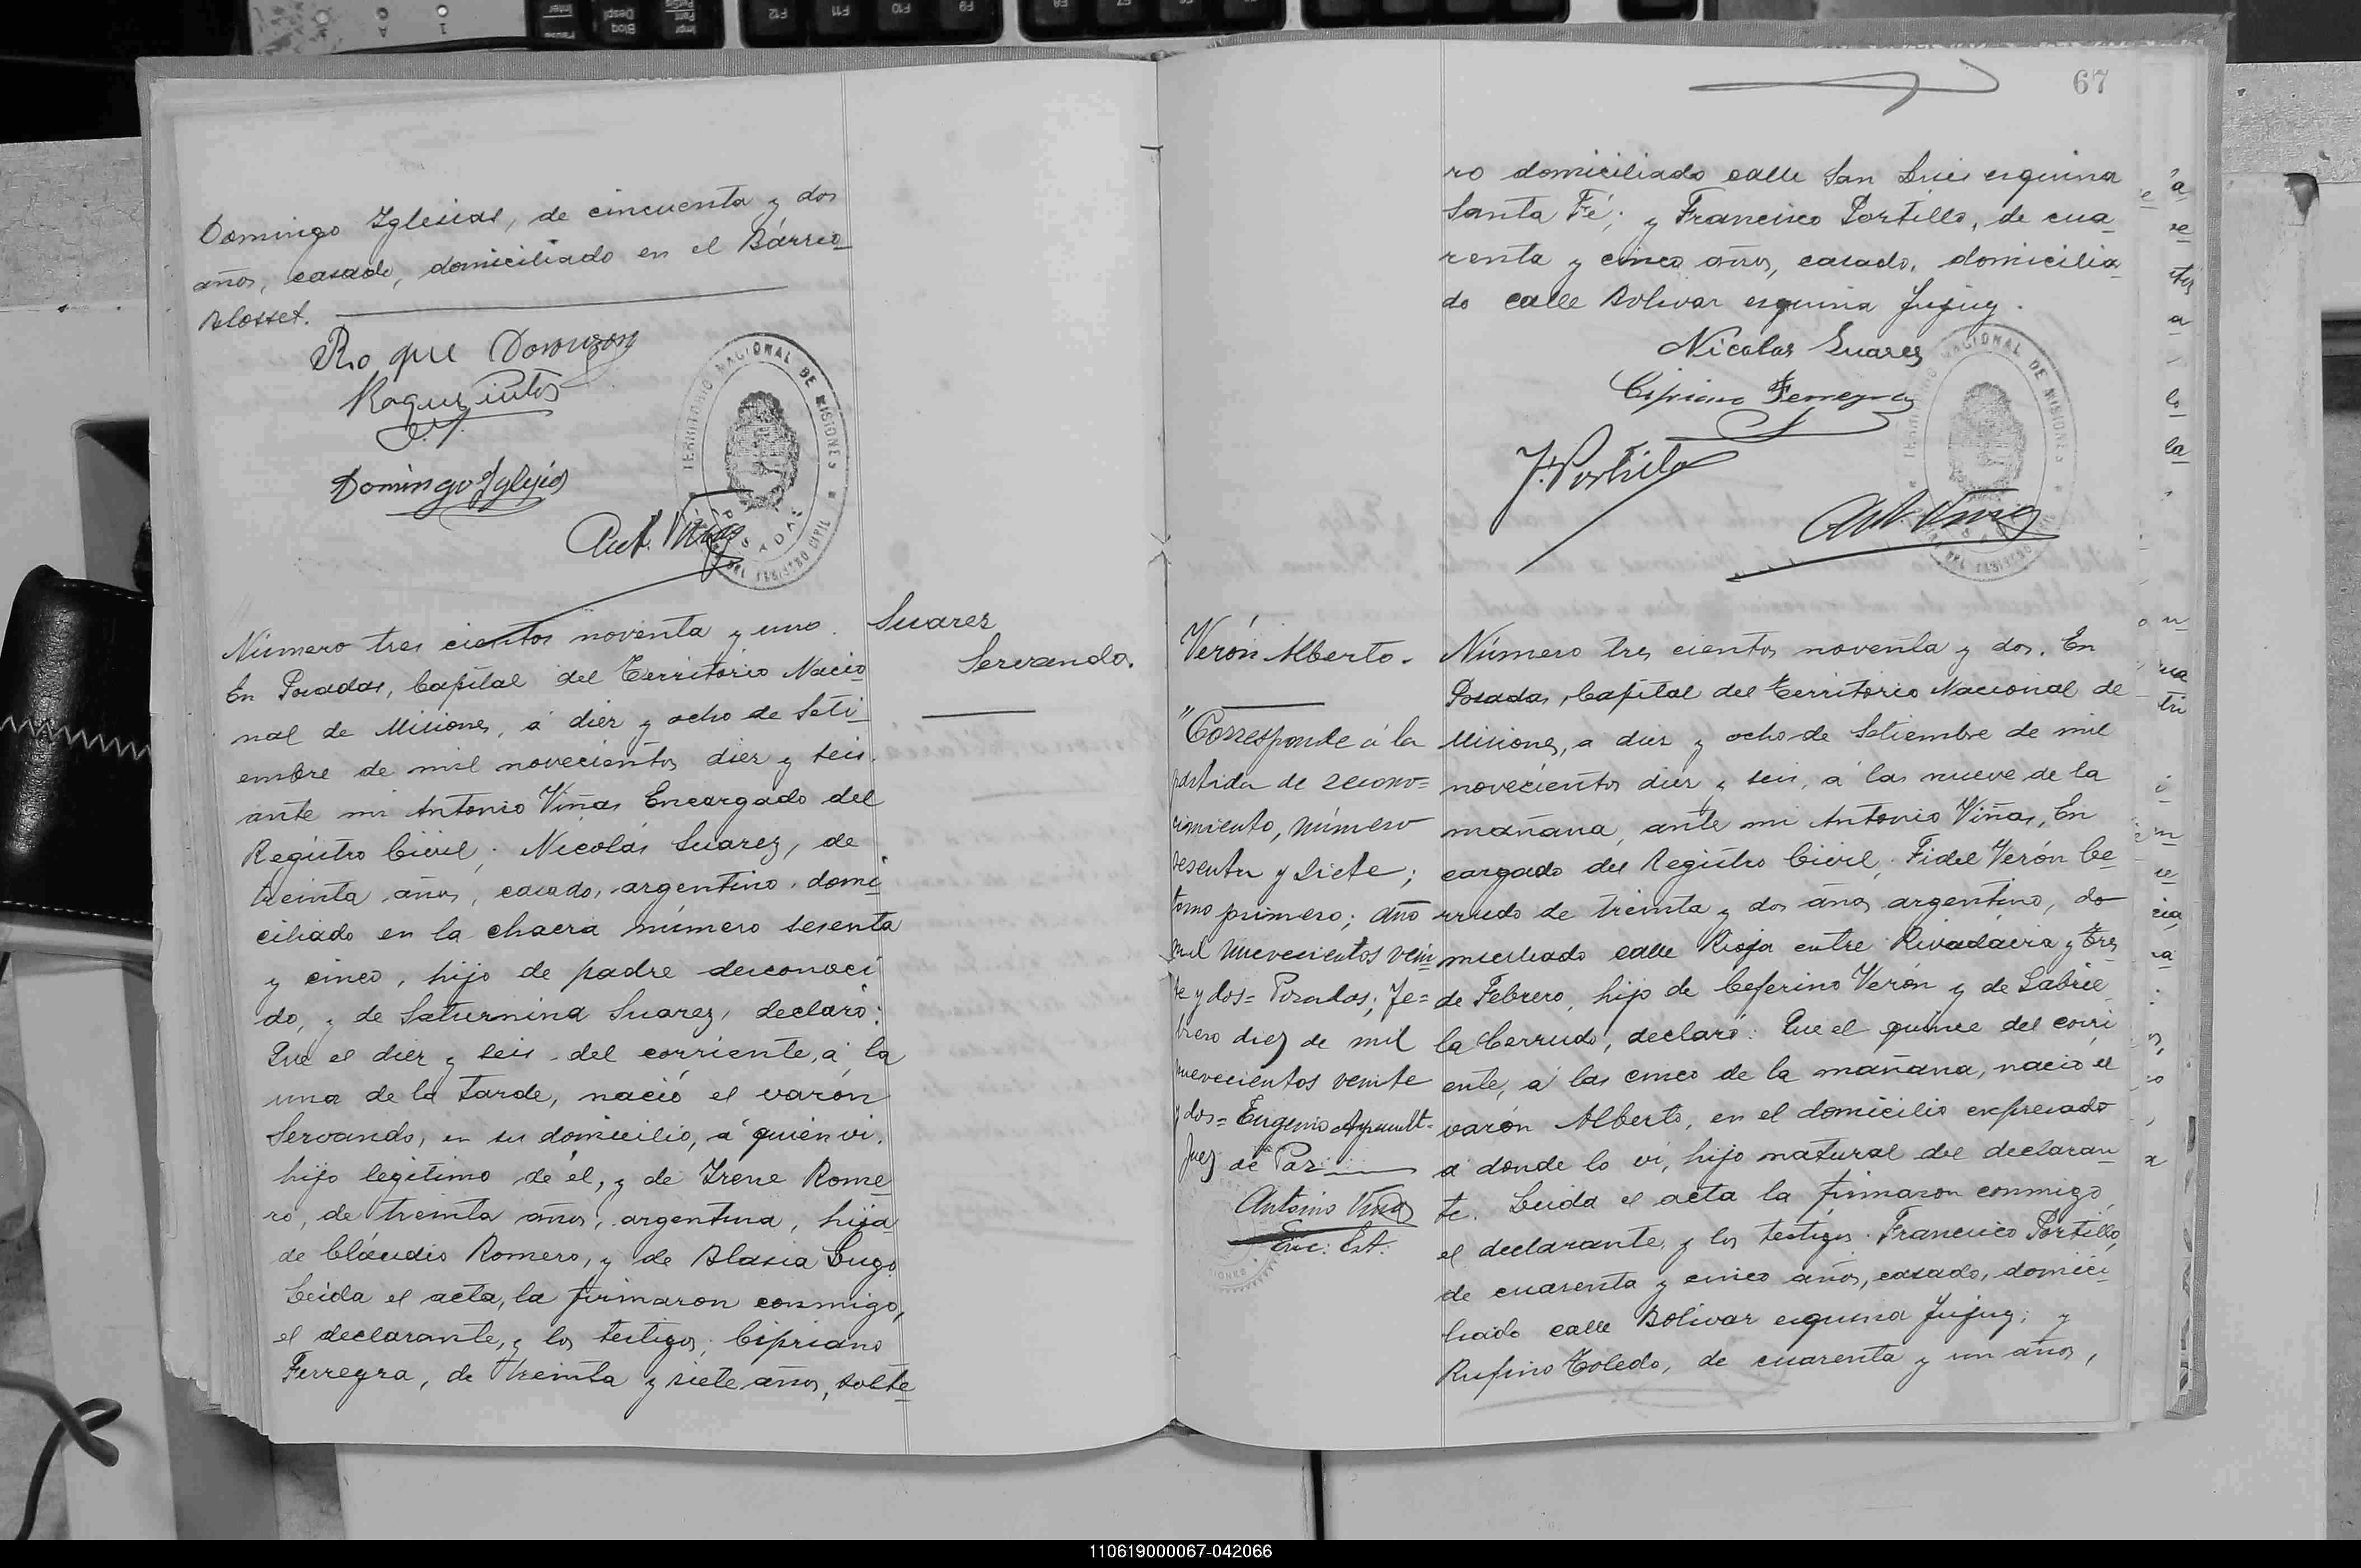 Domingo Iglesias, de cincuenta y dos
años, casado, domiciliado en el Bárrio
Blosset.
Roque
Domingo Iglesias
Ant. Viñas
TERRITORIO NACIONAL DE MISIONES
POSADAS
DEL REGISTRO CIVIL
Número tres cientos noventa y uno.
En Posadas, Capital del Territorio Nacio
nal de Misiones, a diez y ocho de Seti-
embre de mil novecientos diez y seis.
ante mi Antonio Viñas Encargado del
Registro Civil; Nicolás Suarez, de
treinta años, casado, argentino, domi-
ciliado en la chacra número sesenta
y cinco, hijo de padre desconoci-
do, y de Saturnina Suarez, declaró:
Que el diez y seis del corriente, á la
una de la tarde, nació el varón
Servando, en su domicilio, á quien vi,
hijo legitimo de él, y de Irene Rome-
ro, de treinta años, argentina, hija
de Cláudio Romero, y de Blasia Lugo.
Leida el acta, la firmaron conmigo,
el declarante, y los testigos; Cipriano
Ferreyra, de treinta y siete años, solte-
Suarez
Servando.
67
ro domiciliado calle San Luis esquina
Santa Fé; y Francisco Portillo, de cua-
renta y cinco años, casado, domicilia-
do calle Bolivar esquina Jujuy.
Nicolas Suarez
Cipriano Ferreyra
F. Portillo
Ant. Viñas
NACIONAL DE MISIONES
Verón Alberto.
"Corresponde á la
partida de recono=
cimiento, número
sesenta y siete;
tomo primero; año
mil nuevecientos vein
te y dos= Posadas; Fe=
brero diez de mil
nuevecientos veinte
y dos= Eugenio
Juez de Paz
Antonio Viñas
Enc. Est.
Número tres cientos noventa y dos. En
Posadas, Capital del Territorio Nacional de
Misiones, a diez y ocho de Setiembre de mil
novecientos diez y seis, á las nueve de la
mañana, ante mi Antonio Viñas, En
cargado del Registro Civil, Fidel Verón Ce-
rrudo de treinta y dos años argentino, do-
miciliado calle Rioja entre Rivadavia y Tres
de Febrero, hijo de Ceferino Verón y de Gabrie
la Cerrudo, declaró: Que el quince del corri
ente, á las cinco de la mañana, nació el
varón Alberto, en el domicilio expresado
á donde lo vi, hijo natural del declaran
te. Leida el acta la firmaron conmigo,
el declarante, y los testigos Francisco Portillo,
de cuarenta y cinco años, casado, domici-
liado calle Bolivar esquina Jujuy; y
Rufino Toledo, de cuarenta y un años,
110619000067-042066